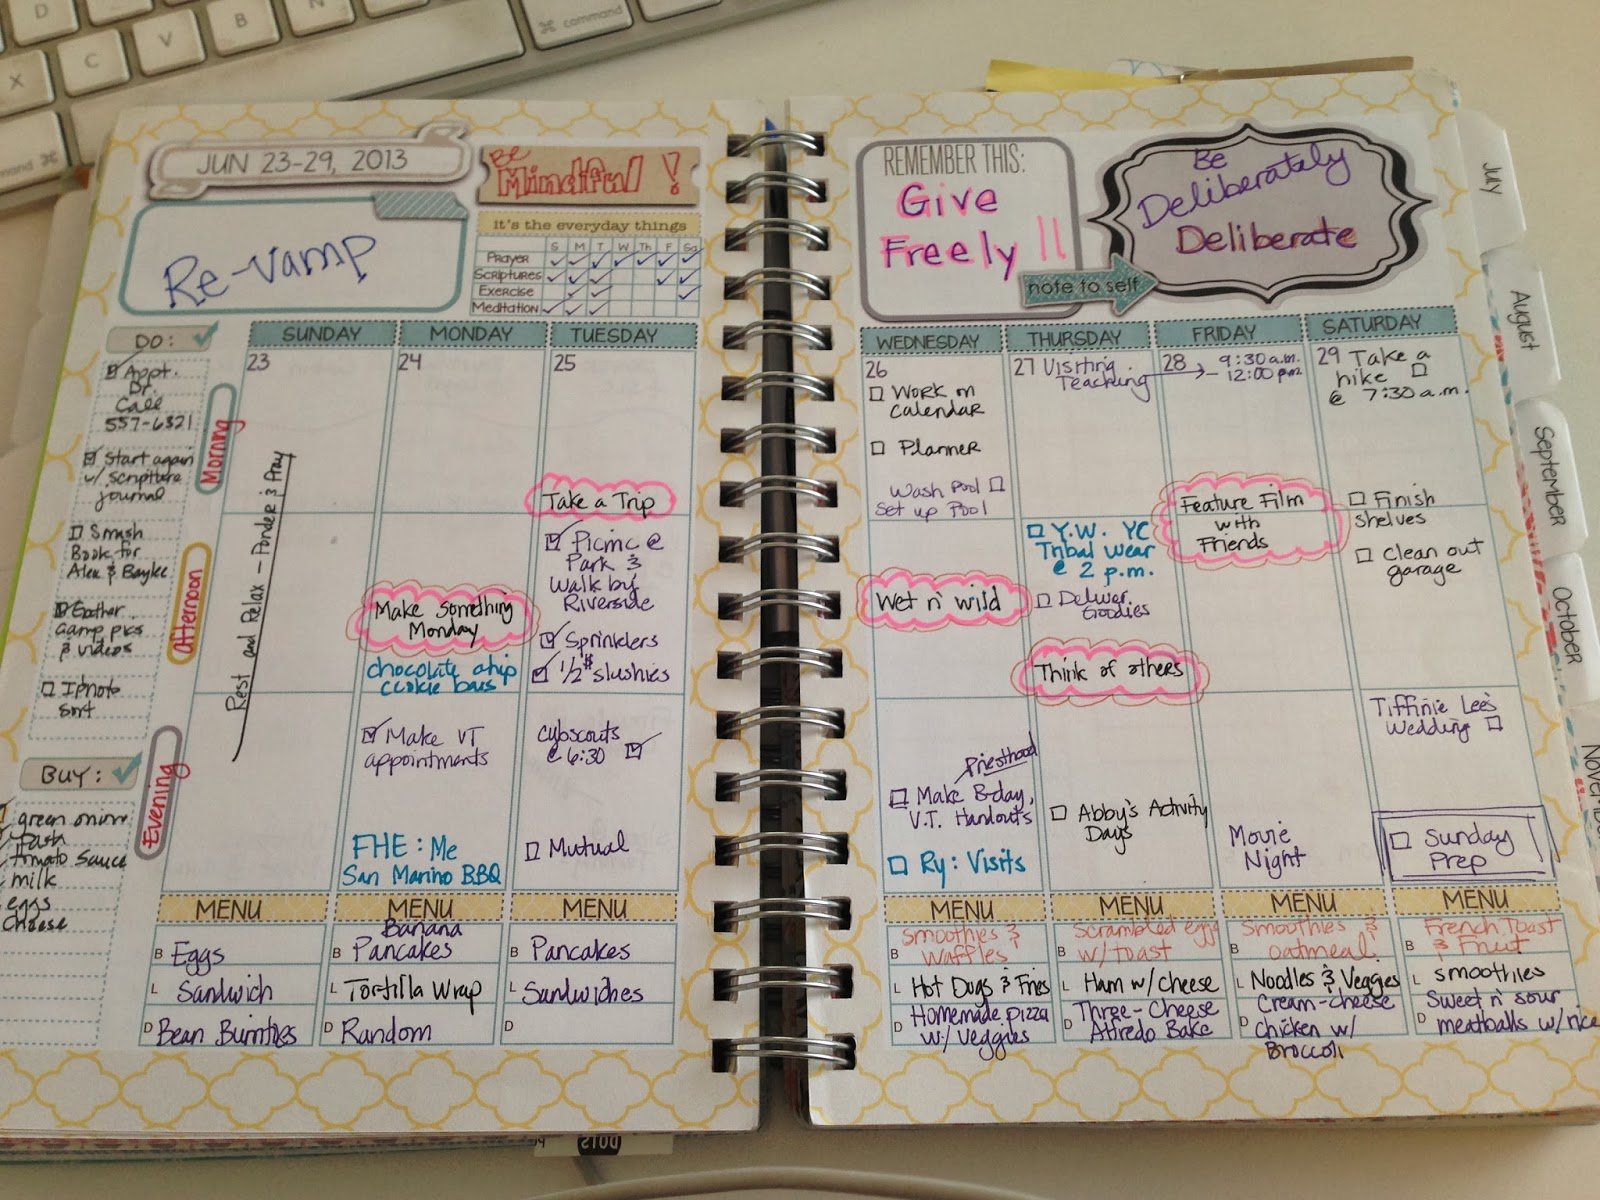 D
F
B
N
X
C
V
command
command
JUN 23-29, 2013
Re-vamp
Be
Mindful!
it's the everyday things
S M T W Th F Sa
Prayer
Scriptures
Exercise
Meditation
DO:
Appt.
Dr.
Call
557-6321
Start again
w/ scripture
journal
Smash
Book for
Alex & Baylee
Gather
camp pics
& videos
Iphoto
sort
BUY:
green onion
milk
tomato sauce
eggs
Cheese
Morning
Afternoon
Evening
SUNDAY
23
Rest and Relax - Ponder & Pray
MENU
B Eggs
L Sandwich
D Bean Burritos
MONDAY
24
Make Something
Monday
chocolate chip
cookie bars
Make VT
appointments
FHE: Me
San Marino BBQ
MENU
Banana
B Pancakes
L Tortilla Wrap
D Random
TUESDAY
25
Take a Trip
Picnic @
Park &
Walk by
Riverside
Sprinklers
1/2 $ slushies
cubscouts
@ 6:30
Mutual
MENU
B Pancakes
L Sandwiches
D
REMEMBER THIS:
Give
Freely !!
note to self
Be
Deliberately
Deliberate
WEDNESDAY
26
Work on
calendar
Planner
Wash Pool
Set up Pool
Wet n' wild
Priesthood
Make B-day,
V.T. Handouts
Ry: Visits
MENU
B Smoothies &
Waffles
L Hot Dogs & Fries
D Homemade pizza
w/ Veggies
THURSDAY
27 Visiting
Teaching
Y.W. YC
Tribal wear
@ 2 p.m.
Deliver
Goodies
Think of others
Abby's Activity
Days
MENU
B Scrambled eggs
w/ toast
L Ham w/ cheese
D Three-Cheese
Alfredo Bake
FRIDAY
28 9:30 a.m.
- 12:00 p.m.
Feature Film
with
Friends
Movie
Night
MENU
B Smoothies &
oatmeal
L Noodles & Veggies
D Cream-cheese
chicken w/
Broccoli
SATURDAY
29 Take a
hike
@ 7:30 a.m.
Finish
shelves
Clean out
garage
Tiffinie Lee's
Wedding
Sunday
Prep
MENU
B French Toast
& Fruit
L smoothies
D Sweet n' sour
meatballs w/ rice
July
August
September
October
November